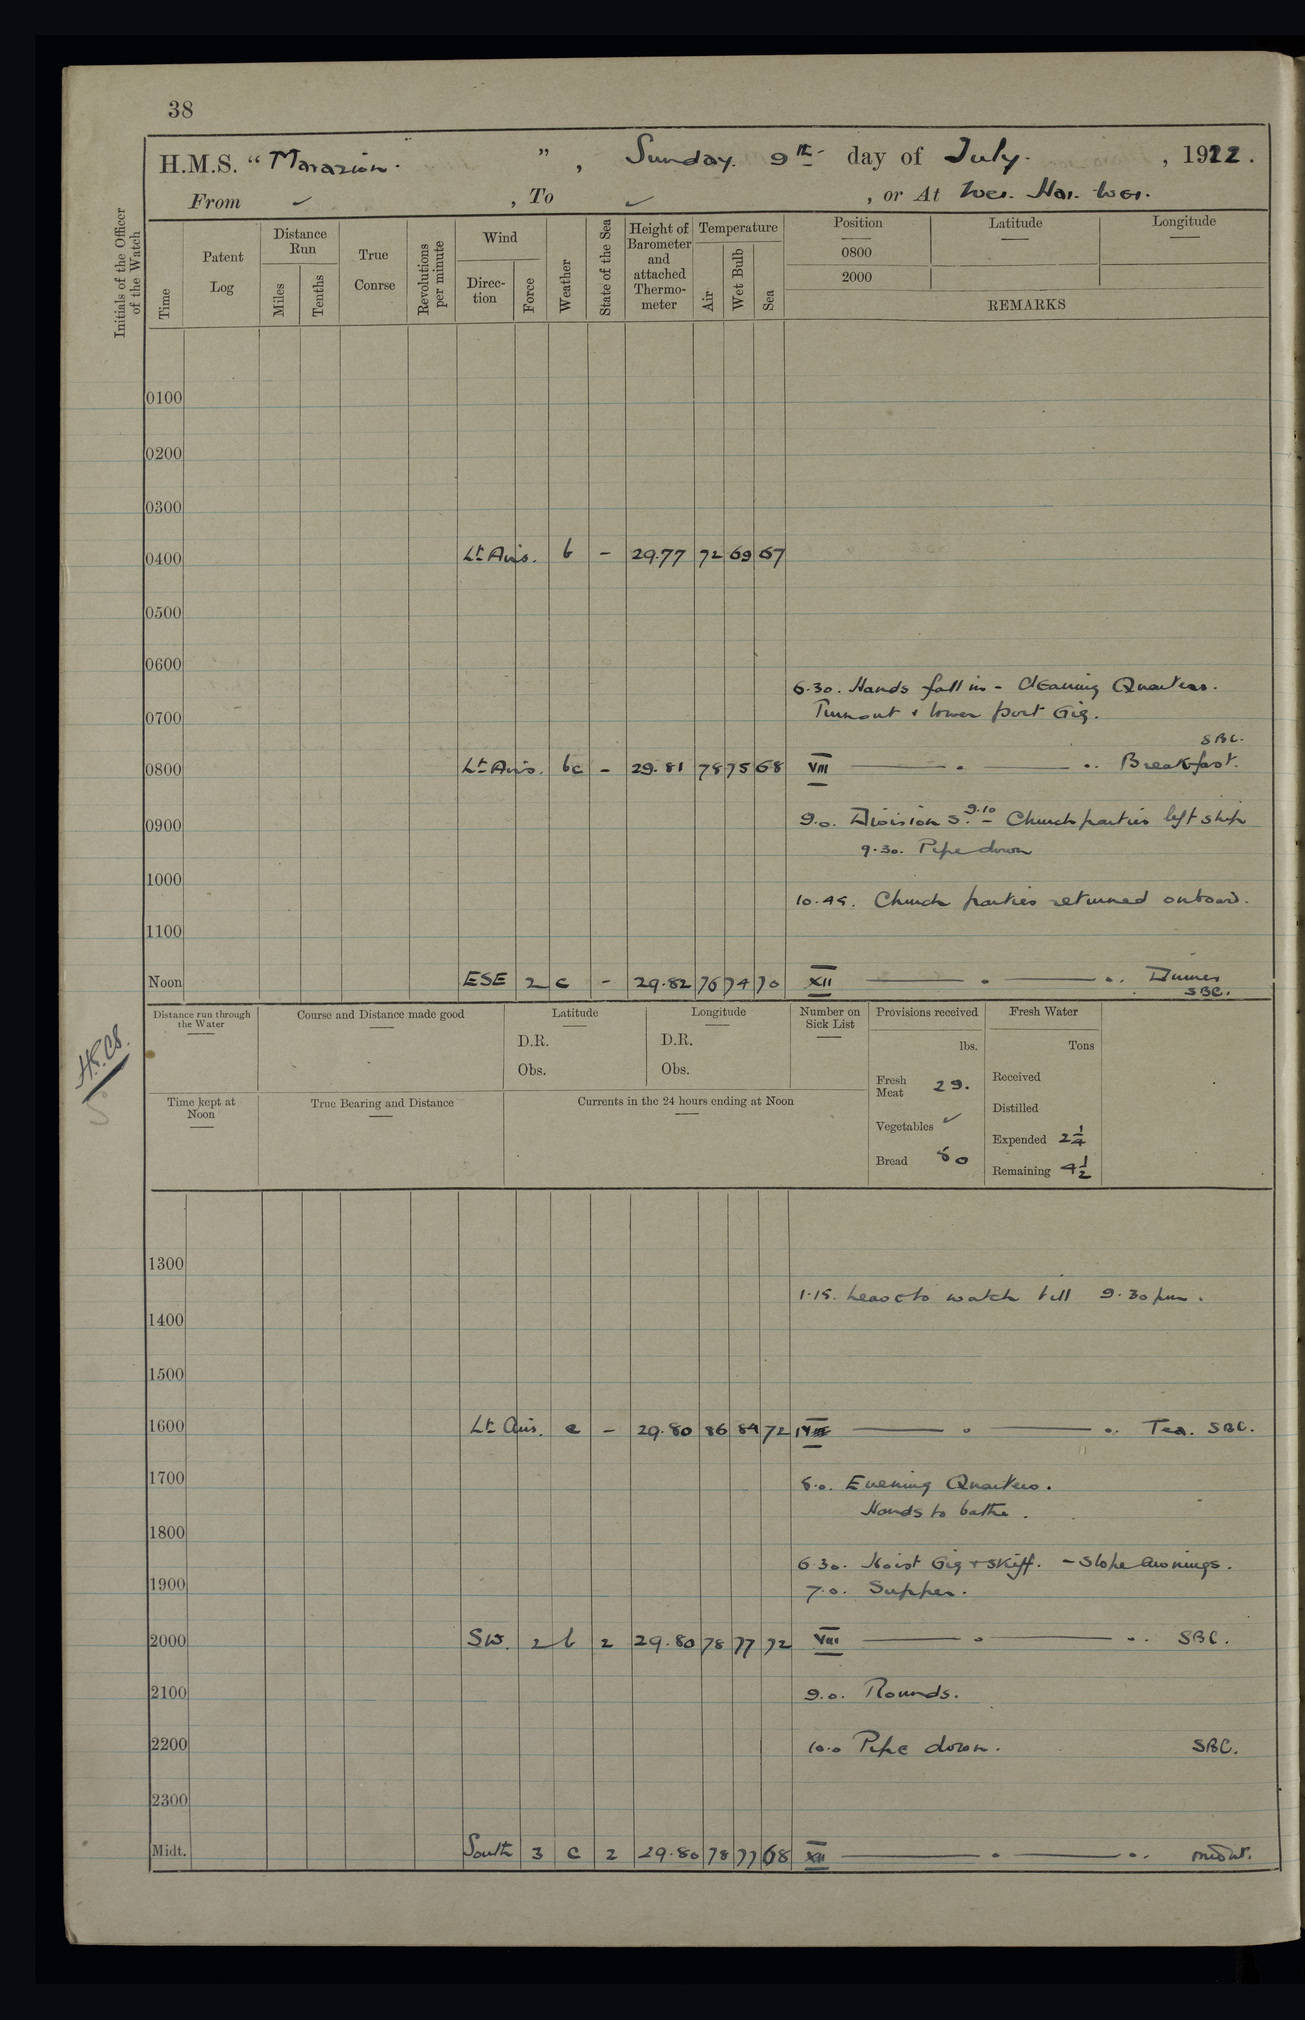 38
H.M.S. “Marazion.” , Sunday. 9th day of July. , 1922.
From ✓ , To ✓ , or At Wei. Hai. Wei.
Initials of the Officer of the Watch
Time
Patent Log
Distance Run
Miles
Tenths
True Course
Revolutions per minute
Wind
Direc-tion
Force
Weather
State of the Sea
Height of Barometer and attached Thermo-meter
Temperature
Air
Wet Bulb
Sea
Position
Latitude
Longitude
0800
2000
REMARKS
0100
0200
0300
0400 Lt Airs. b - 29.77 72 69 67
0500
0600
6.30. Hands fall in - Cleaning Quarters.
0700 Turnout & lower port Gig.
SBC.
0800 Lt Airs. bc - 29.81 78 75 68 VIII Breakfast.
0900 9.0. Divisions. 9.10 - Church parties left ship
9.30. Pipe down
1000
10.45. Church parties returned onboard.
1100
Noon ESE 2 c - 29.82 76 74 70 XII Dinner
SBC.
Distance run through the Water
Course and Distance made good
Latitude
D.R.
Obs.
Longitude
D.R.
Obs.
Number on Sick List
Provisions received
lbs.
Fresh Meat 29.
Vegetables ✓
Bread 80
Fresh Water
Tons
Received
Distilled
Expended 2 1/4
Remaining 4 1/2
Time kept at Noon
True Bearing and Distance
Currents in the 24 hours ending at Noon
1300
1.15. Leave to watch till 9.30 pm.
1400
1500
1600 Lt Airs. c - 29.80 86 84 72 IV Tea. SBC.
1700 5.0. Evening Quarters.
Hands to bathe.
1800
6.30. Hoist Gig & Skiff. - Slope Awnings.
1900 7.0. Supper.
2000 SW. 2 b 2 29.80 78 77 72 VIII SBC.
2100 9.0. Rounds.
2200 10.0 Pipe down. SBC.
2300
Midt. South 3 c 2 29.80 78 77 68 XII midnt.